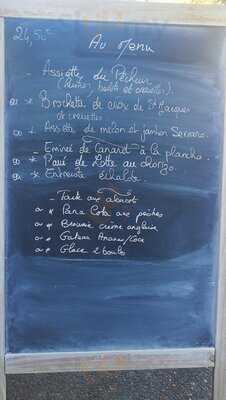 24,50€
Au Menu
- Assiette du Pêcheur
(huîtres, bulots et crevettes).
ou * Brochette de noix de St Jacques
de crevettes
ou * Assiette de melon et jambon Serrano.
- Emincé de Canard à la plancha.
ou * Pavé de Lotte au chorizo.
ou * Entrecôte échalote
- Tarte aux abricots
ou * Pana Cota aux pêches
ou * Brownie crème anglaise
ou * Gateau Ananas/Coco
ou * Glace 2 boules